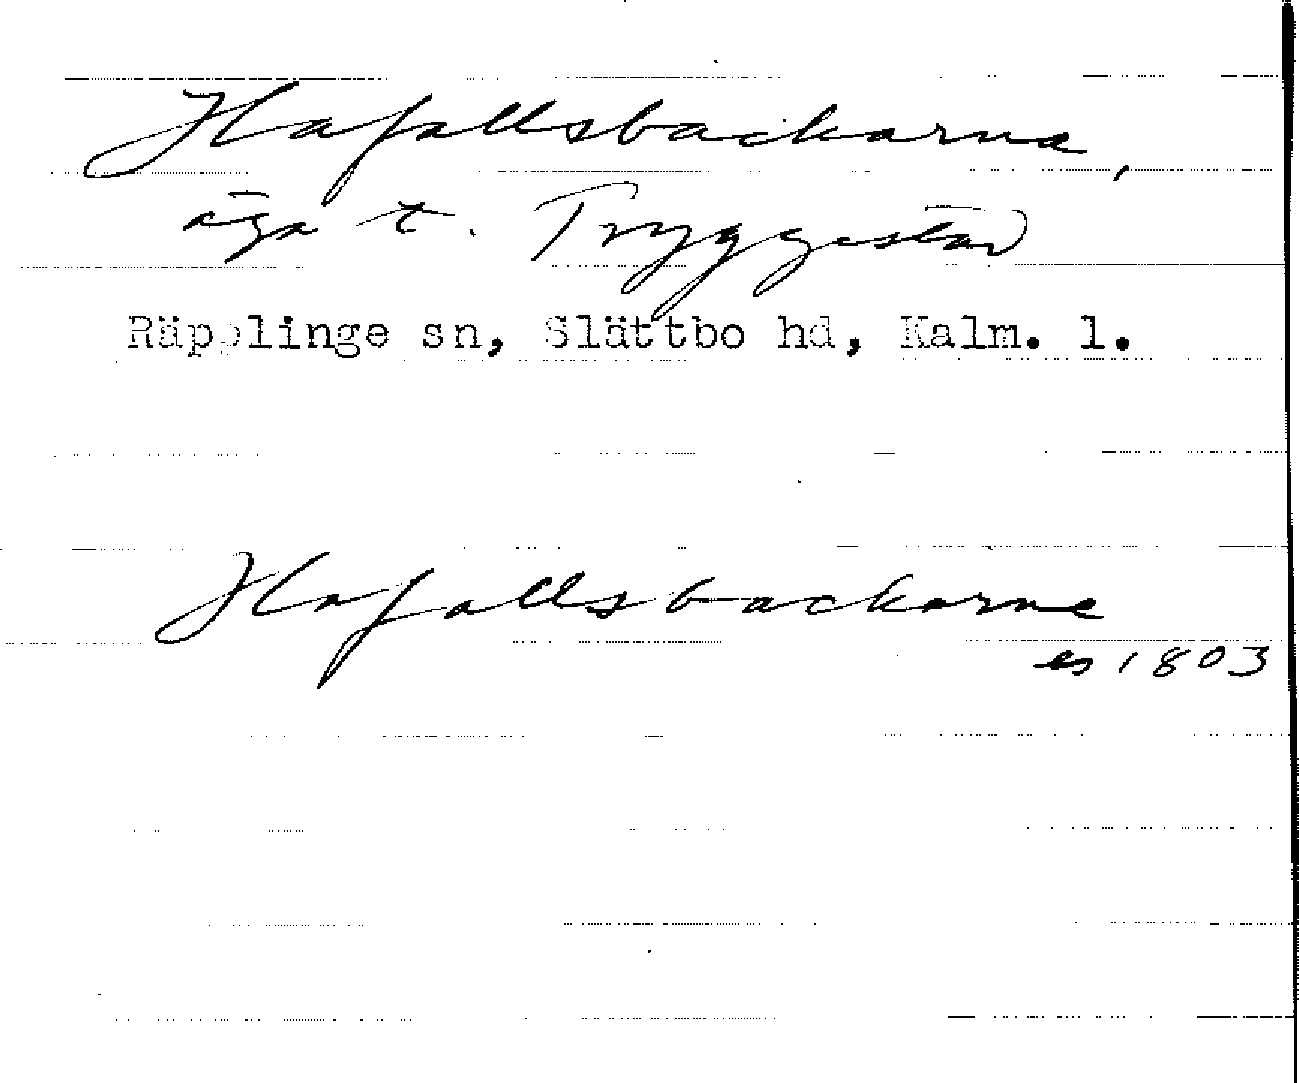 Hafallsbackarna,
äga t. Tryggestad
Räpplinge sn, Slättbo hd, Kalm. l.
Hafallsbackarne
es 1803